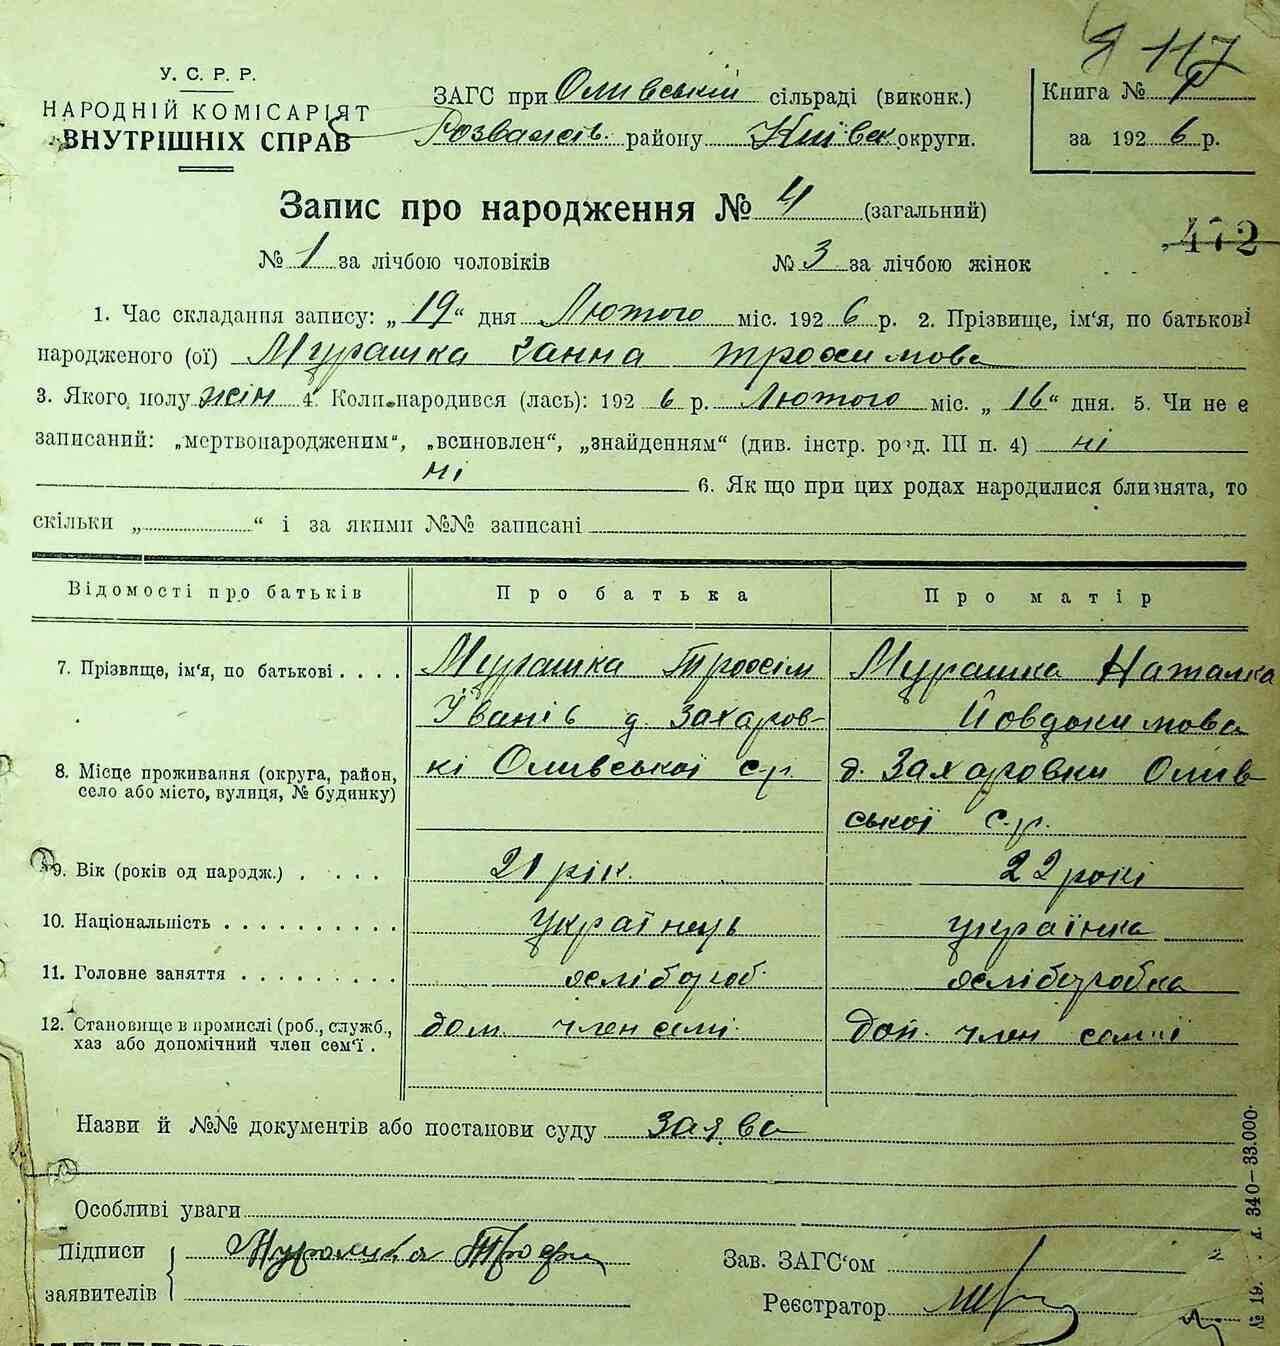 Я 117
У. С. Р. Р.
НАРОДНІЙ КОМІСАРІЯТ
ВНУТРІШНІХ СПРАВ
ЗАГС при Оливській сільраді (виконк.)
Розважів. району Київськ округи.
Книга №
за 1926 р.
Запис про народження № 4 (загальний)
472
№ 1 за лічбою чоловіків № 3 за лічбою жінок
1. Час складання запису: „19“ дня Лютого міс. 1926 р. 2. Прізвище, ім‘я, по батькові
народженого (ої) Мурашка Ганна Трохимова
3. Якого полу жін 4. Коли народився (лась): 1926 р. Лютого міс. „16“ дня. 5. Чи не є
записаний: „мертвонародженим“, „всиновлен“, „знайденням“ (див. інстр. розд. III п. 4) ні
ні 6. Як що при цих родах народилися близнята, то
скільки „ “ і за якими №№ записані
Відомості про батьків Про батька Про матір
7. Прізвище, ім‘я, по батькові . . . . Мурашка Трохім Мурашка Наталка
Іванів д. Захаров- Йовдокимова
8. Місце проживання (округа, район, кі Оливської с.р. д. Захаровки Олив
село або місто, вулиця, № будинку)
ської с.р.
9. Вік (років од народж.) . . . . 21 рік. 22 рокі
10. Національність . . . . . . . . . . українець українка
11. Головне заняття . . . . . . . . хлібороб. хліборобка
12. Становище в промислі (роб., служб., дом. член семі. доп. член семії
хаз або допомічний член сем‘ї .
Назви й №№ документів або постанови суду заява
Особливі уваги
Підписи Мурашка Трофим
заявителів
Зав. ЗАГС‘ом
Реєстратор
№ 19. . д. 340—33.000.